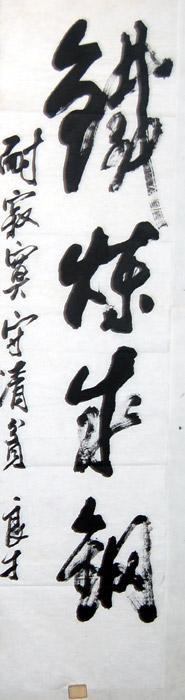 鐵煉成鋼
耐寂寞守清貧 良才